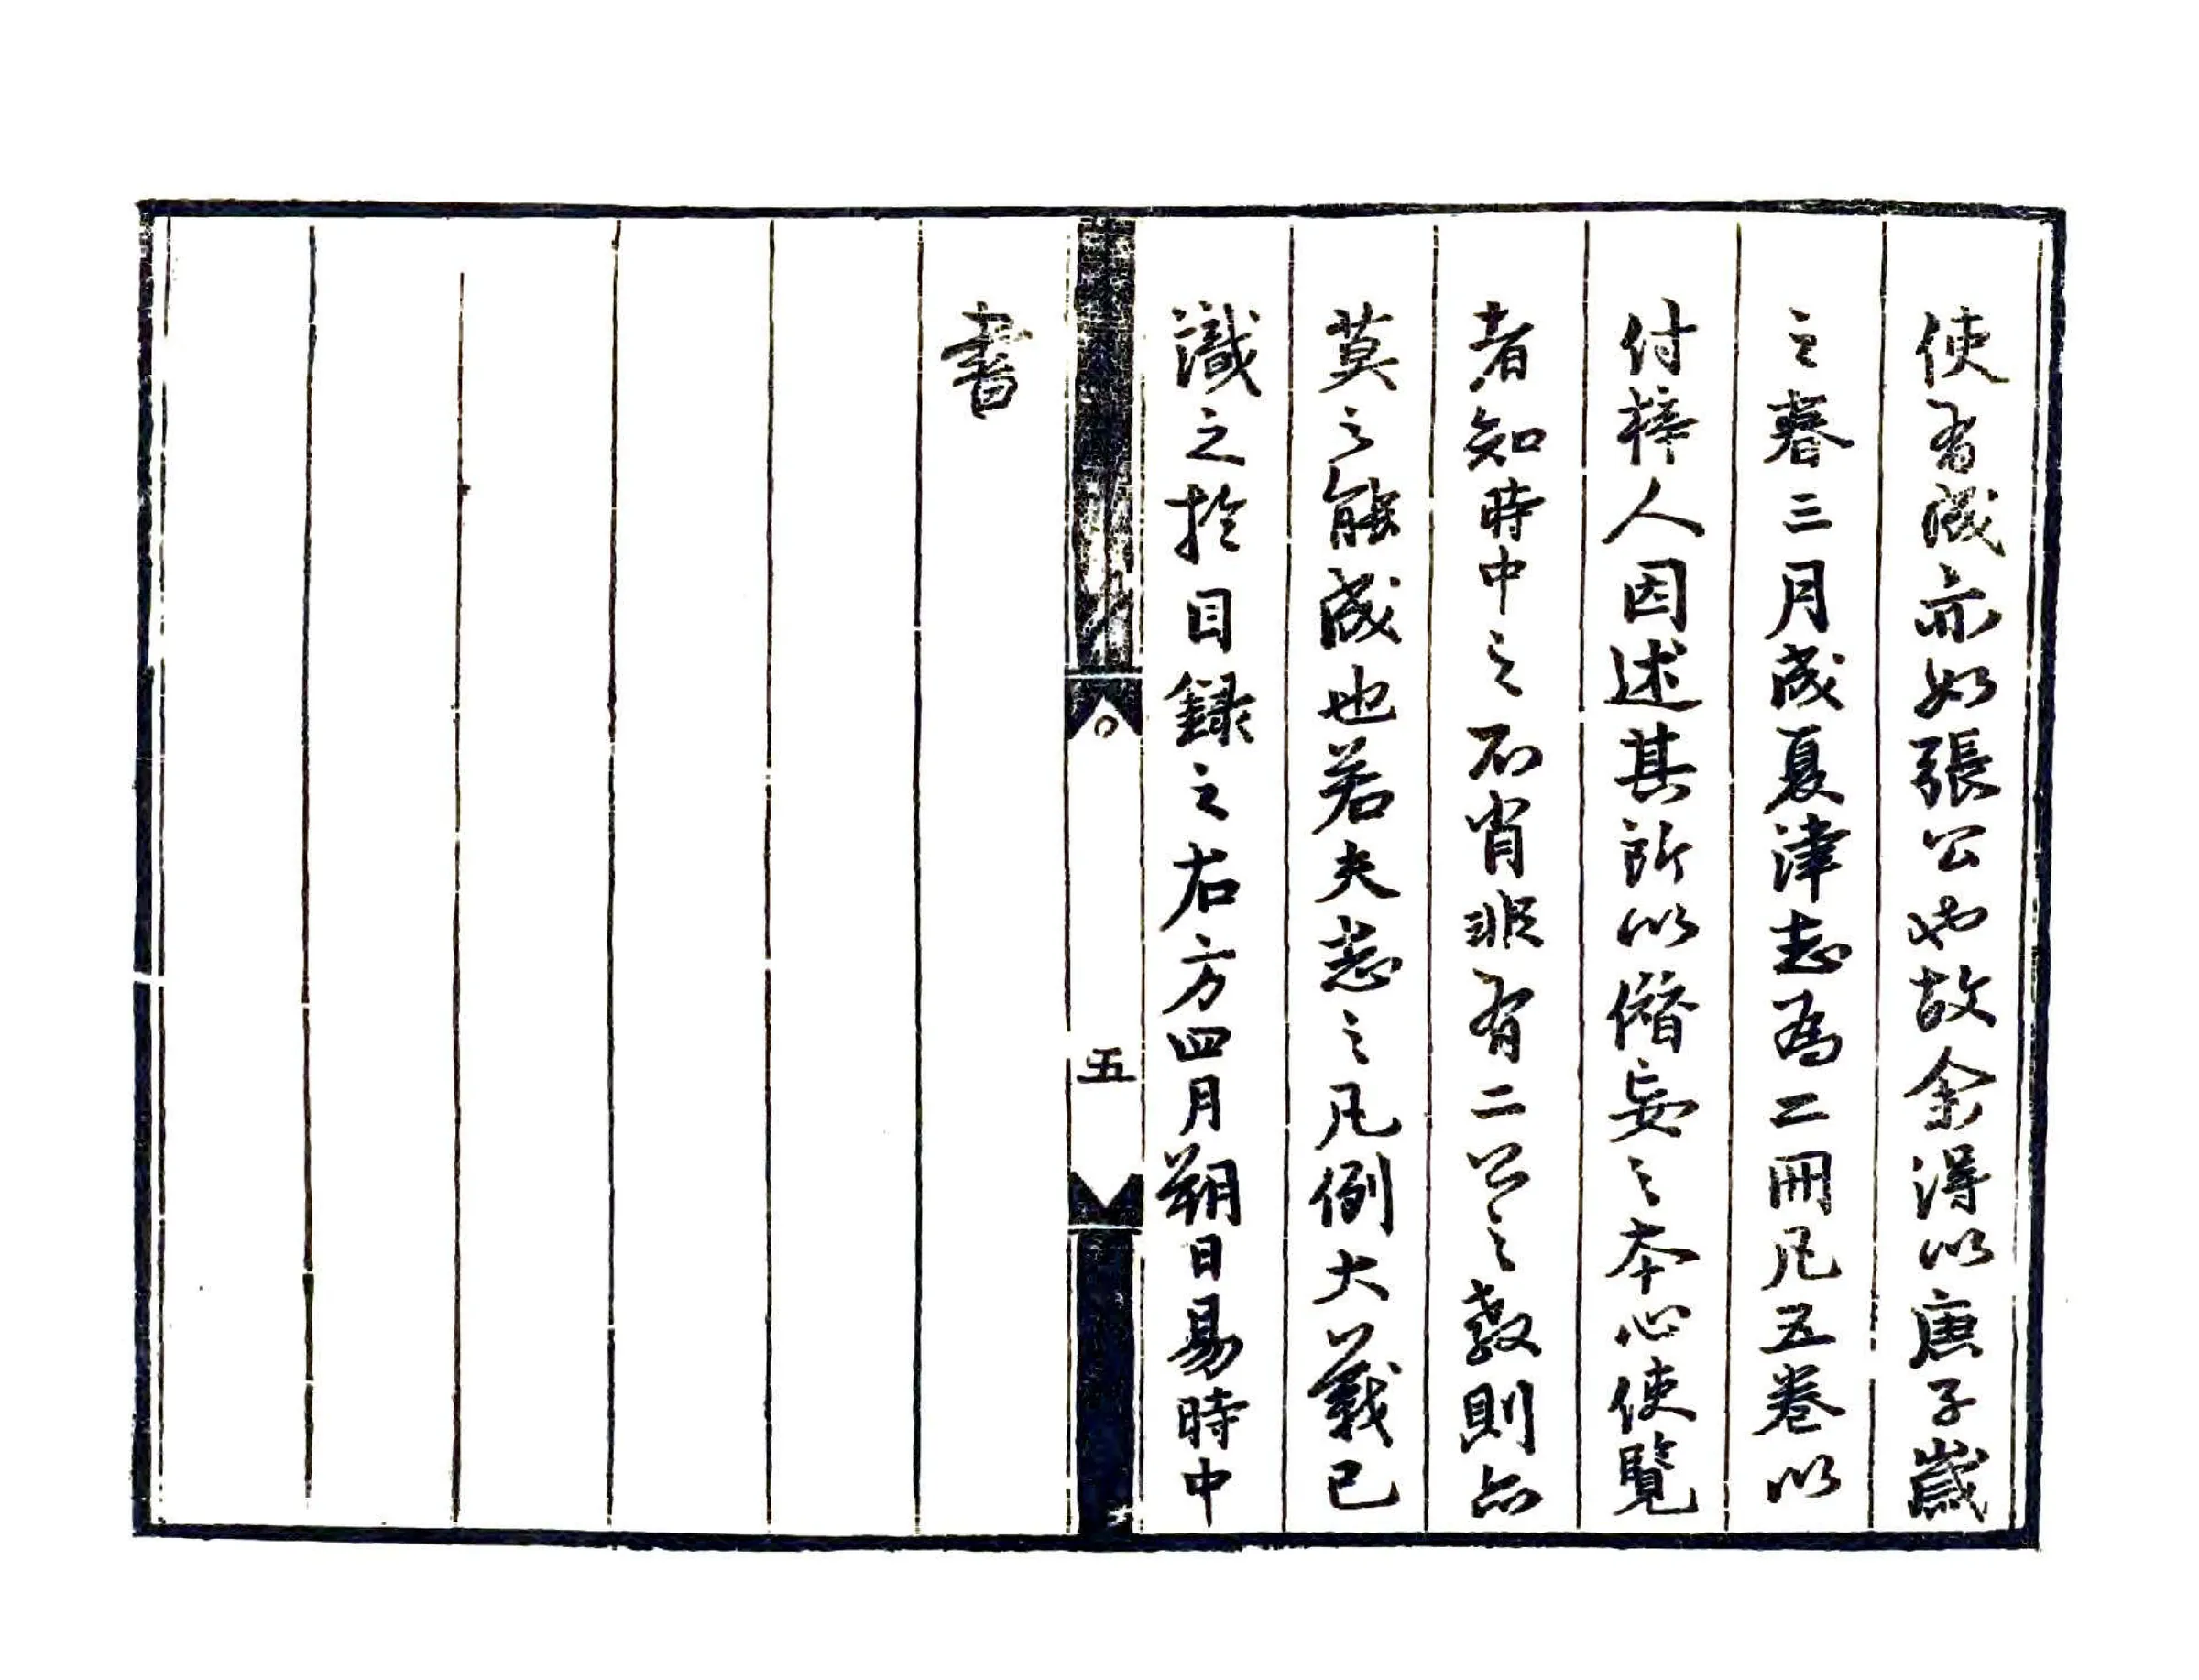 使有成亦如張公也故余得以庚子歲
之春三月成夏津志為二冊凡五卷以
付梓人因述其所以僭妄之本心使覽
者知時中之不肖非有二公之教則亦
莫之能成也若夫志之凡例大義已
識之於目錄之右方四月朔日易時中
書
五